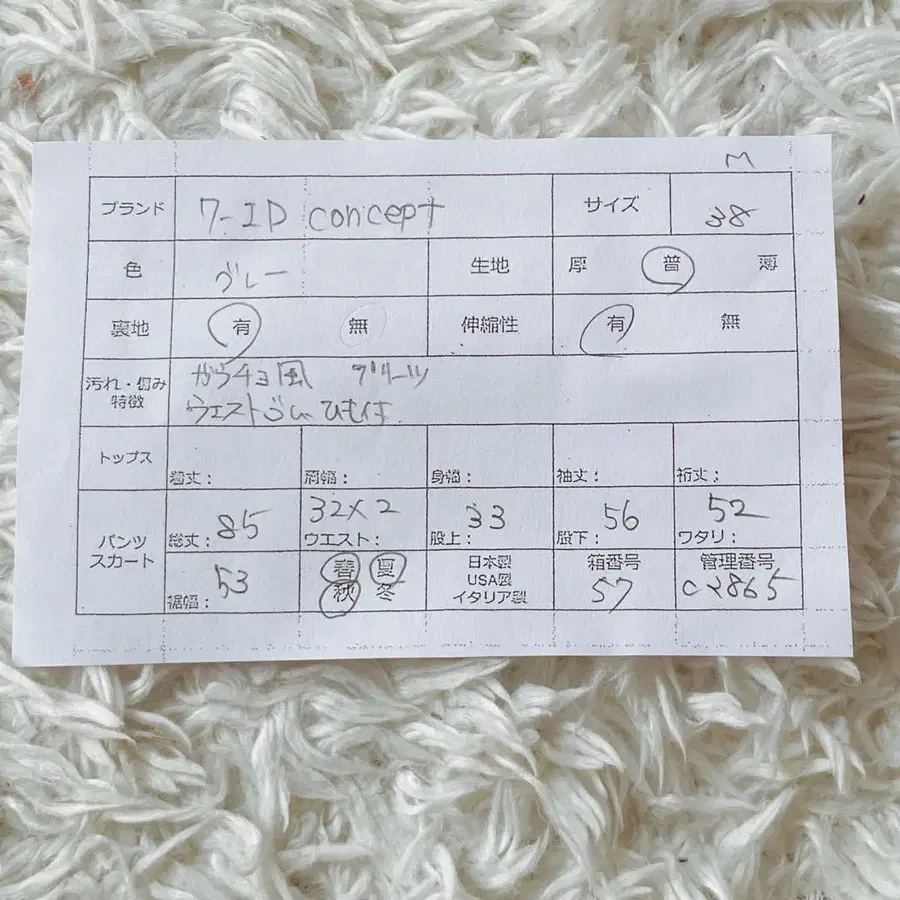 M
ブランド 7-ID concept サイズ 38
色 グレー 生地 厚 普 薄
裏地 有 無 伸縮性 有 無
汚れ・傷み ガウチョ風 プリーツ
特徴 ウエストゴム ひも付
トップス 着丈: 肩幅: 身幅: 袖丈: 裄丈:
パンツ スカート 総丈: 85 ウエスト: 32×2 股上: 33 股下: 56 ワタリ: 52
裾幅: 53 春 夏 秋 冬 日本製 USA製 イタリア製 箱番号 57 管理番号 C2865